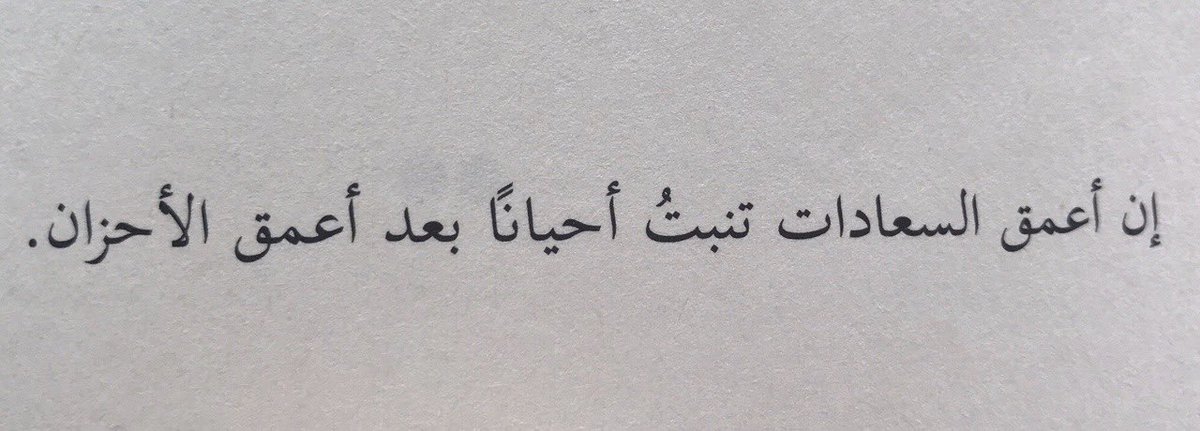 إن أعمق السعادات تنبتُ أحيانًا بعد أعمق الأحزان.